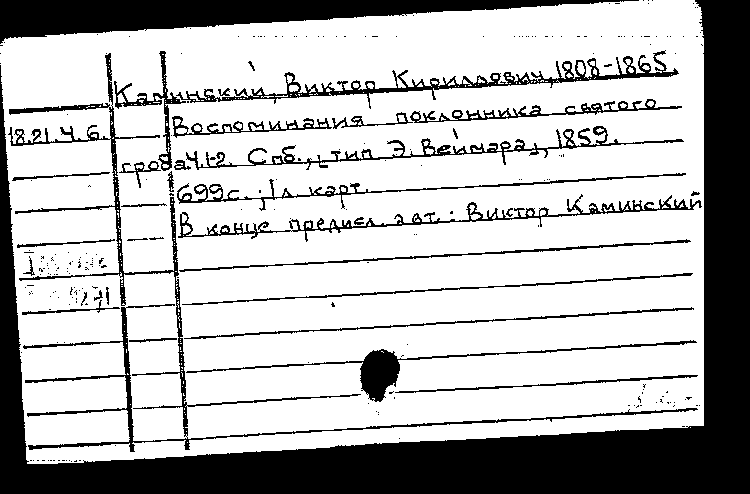 Каминский, Виктор Кириллович, 1808-1865.
18.21.4.6. Воспоминания поклонника святого
гроба Ч.1-2. Спб., [тип Э. Веймара], 1859.
699с.; 1л карт.
В конце предисл. авт.: Виктор Каминский